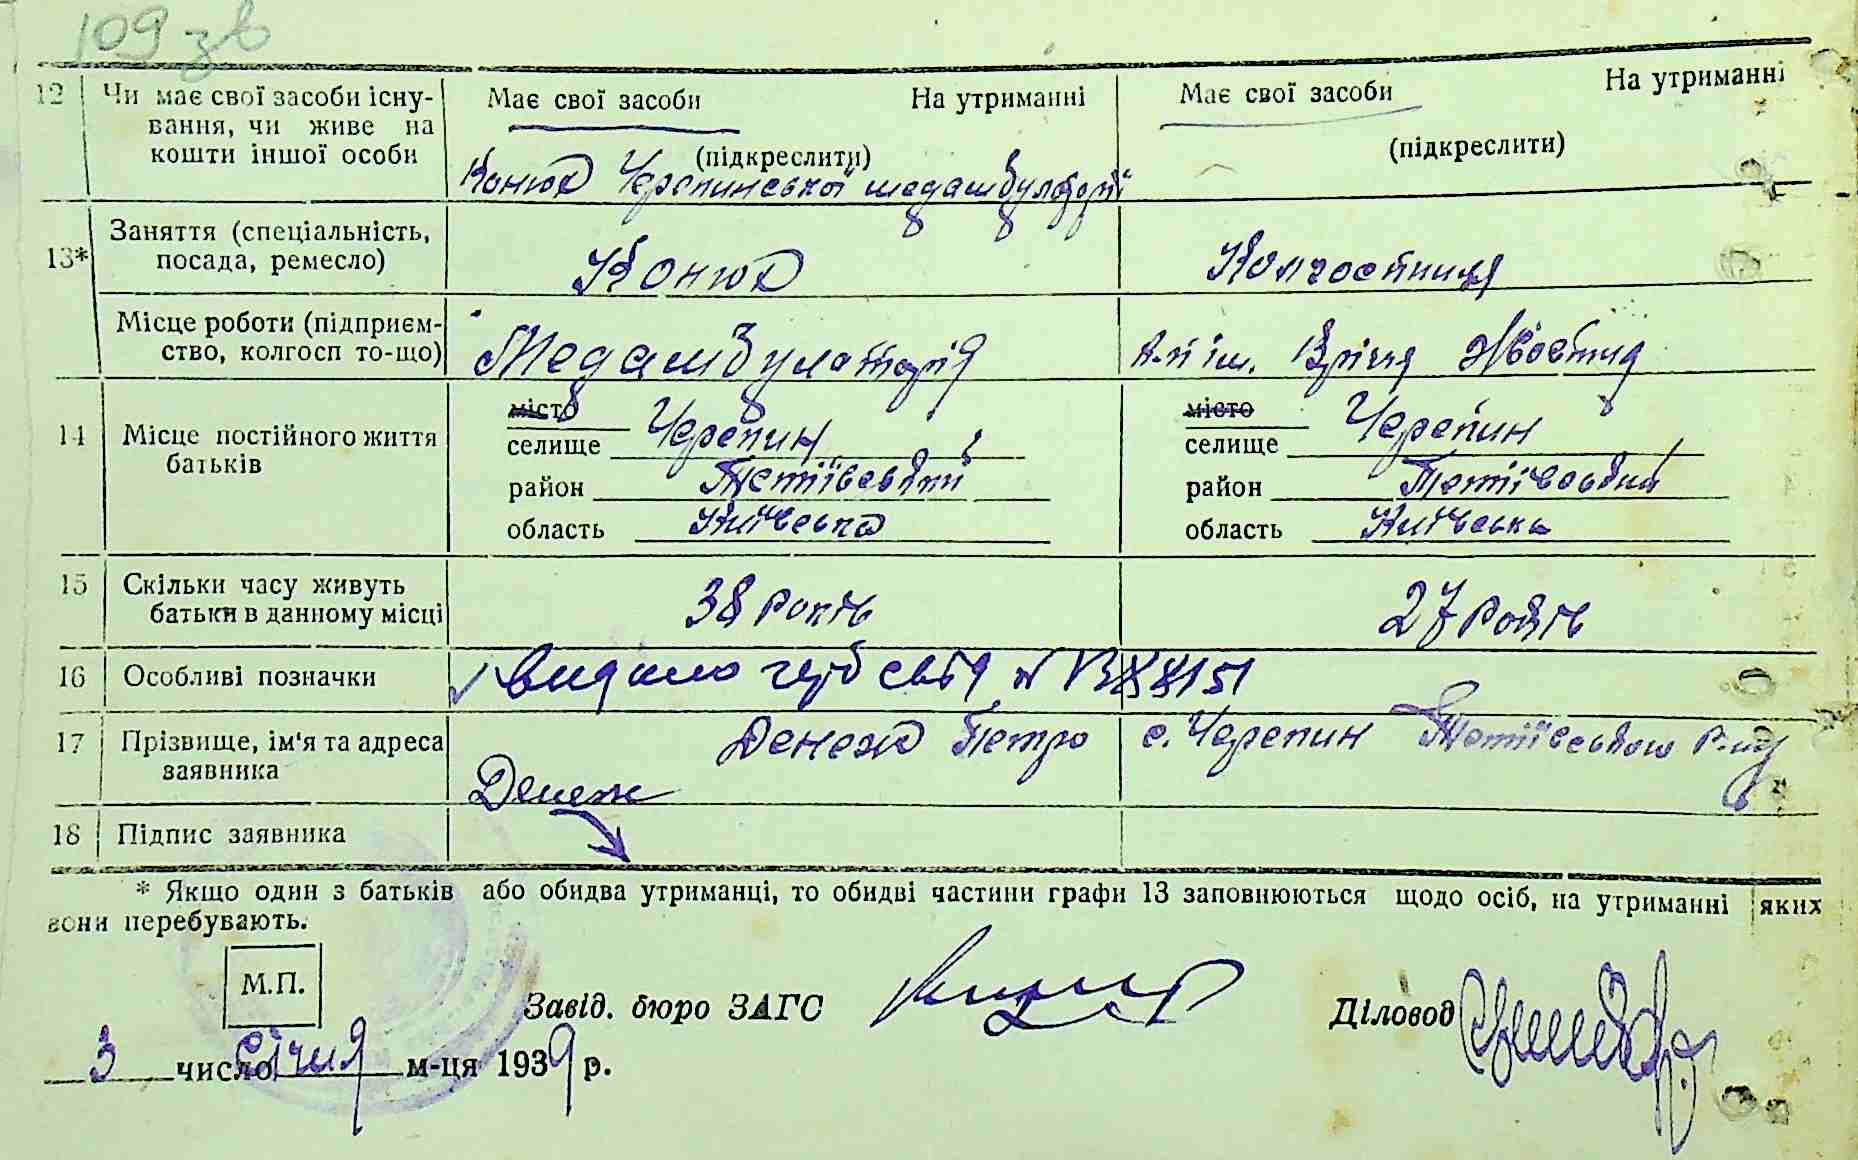 109 зв
12 Чи має свої засоби існу- Має свої засоби На утриманні Має свої засоби На утриманні
вання, чи живе на
кошти іншої особи (підкреслити) (підкреслити)
Конюх Черепинської медамбулаторії
Заняття (спеціальність,
13* посада, ремесло) Конюх Колгоспниця
Місце роботи (підприєм-
ство, колгосп то-що) Медамбулаторія К-п ім. Жовтня
місто Черепин місто Черепин
14 Місце постійного життя селище селище
батьків
район Тетіївський район Тетіївський
область Київська область Київська
15 Скільки часу живуть
батьки в данному місці 38 років 27 років
16 Особливі позначки Видано №
17 Прізвище, ім'я та адреса Денеж Петро с. Черепин Тетіївського р-ну
заявника
Денеж
18 Підпис заявника
* Якщо один з батьків або обидва утриманці, то обидві частини графи 13 заповнюються щодо осіб, на утриманні яких
вони перебувають.
М.П.
Завід. бюро ЗАГС Діловод
3 число Січня м-ця 1939 р.